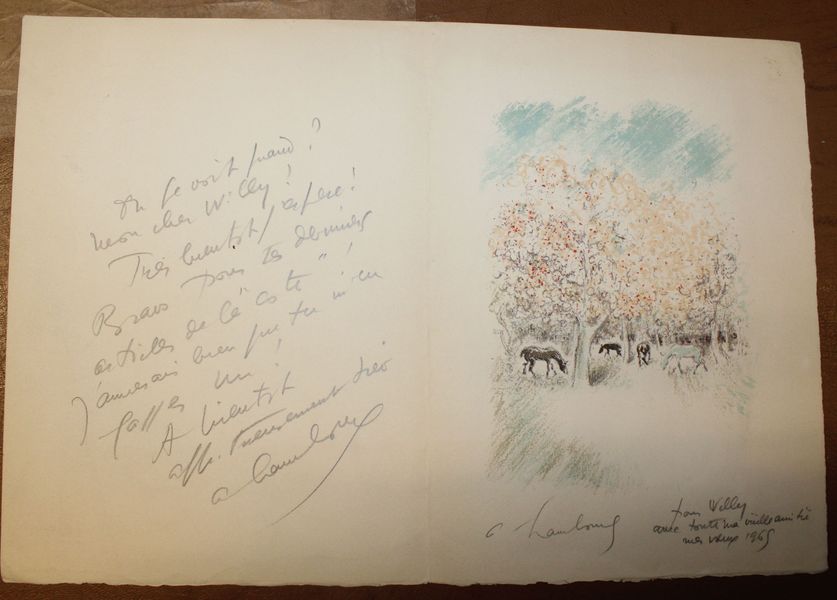 On se voit quand ?
mon cher Willy !
Très bientôt j'espère !
Bravo pour tes derniers
articles de la "Cote" !
J'aimerais bien que tu m'en
fasses un !
A bientôt
aff. très
a hambourg
a hambourg
pour Willy
avec toute ma vieille amitié
mes voeux 1965